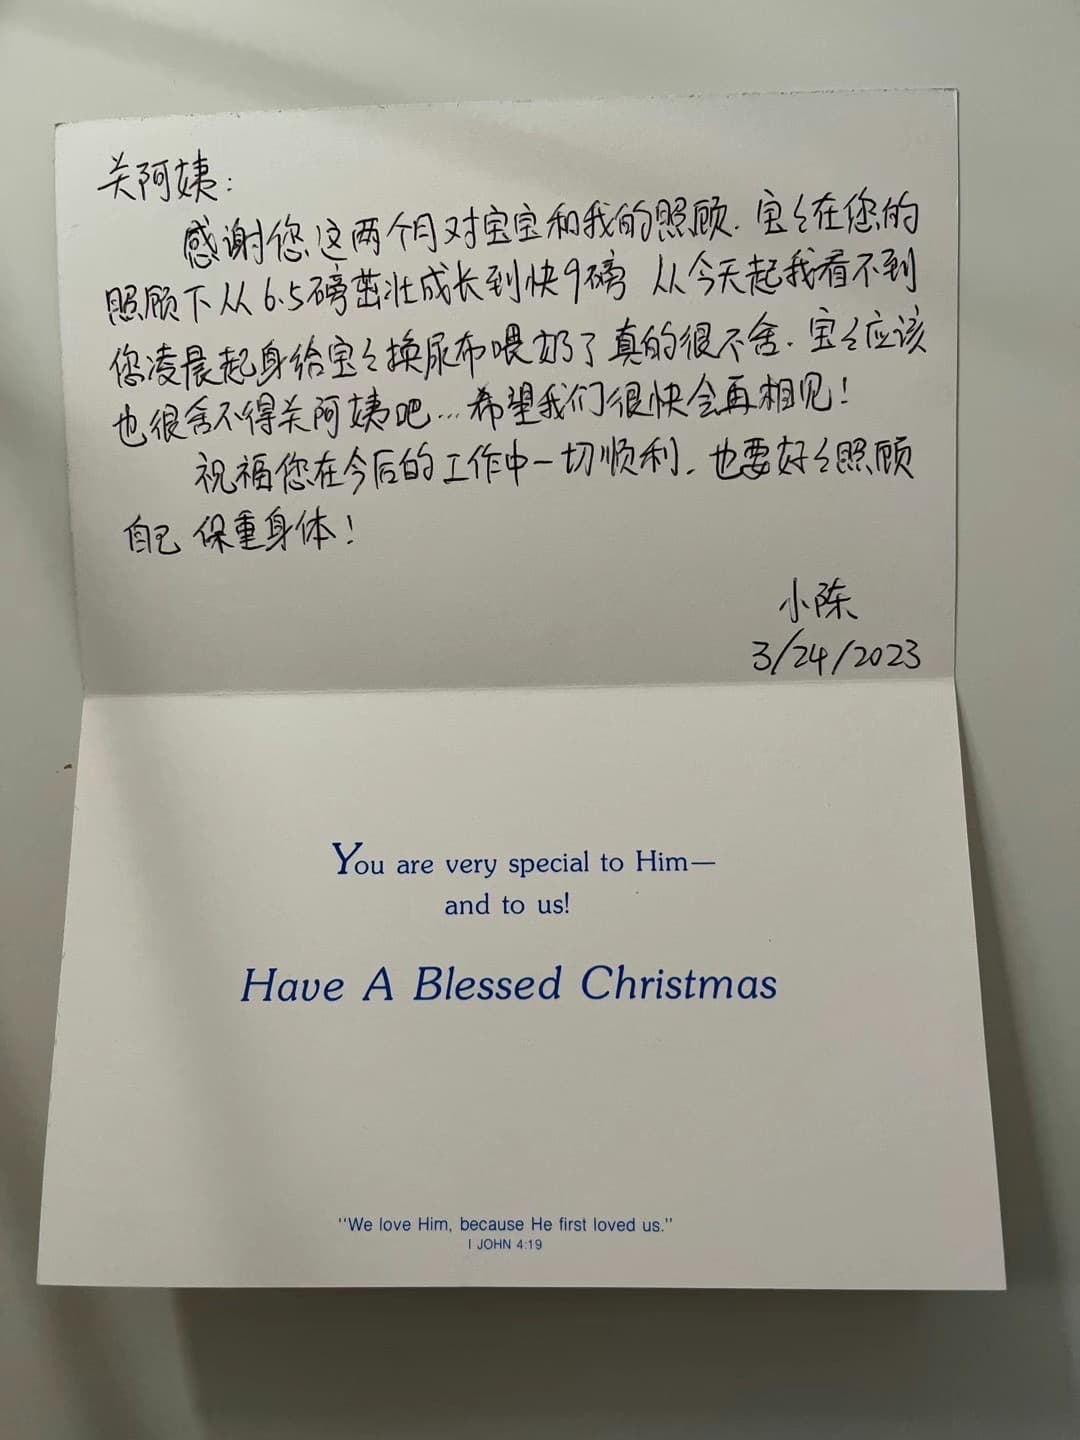 关阿姨:
感谢您这两个月对宝宝和我的照顾. 宝々在您的
照顾下从6.5磅茁壮成长到快9磅 从今天起我看不到
您凌晨起身给宝々换尿布喂奶了真的很不舍. 宝々应该
也很舍不得关阿姨吧...希望我们很快会再相见!
祝福您在今后的工作中一切顺利. 也要好々照顾
自己 保重身体!
小陈
3/24/2023
You are very special to Him—
and to us!
Have A Blessed Christmas
"We love Him, because He first loved us."
I JOHN 4:19